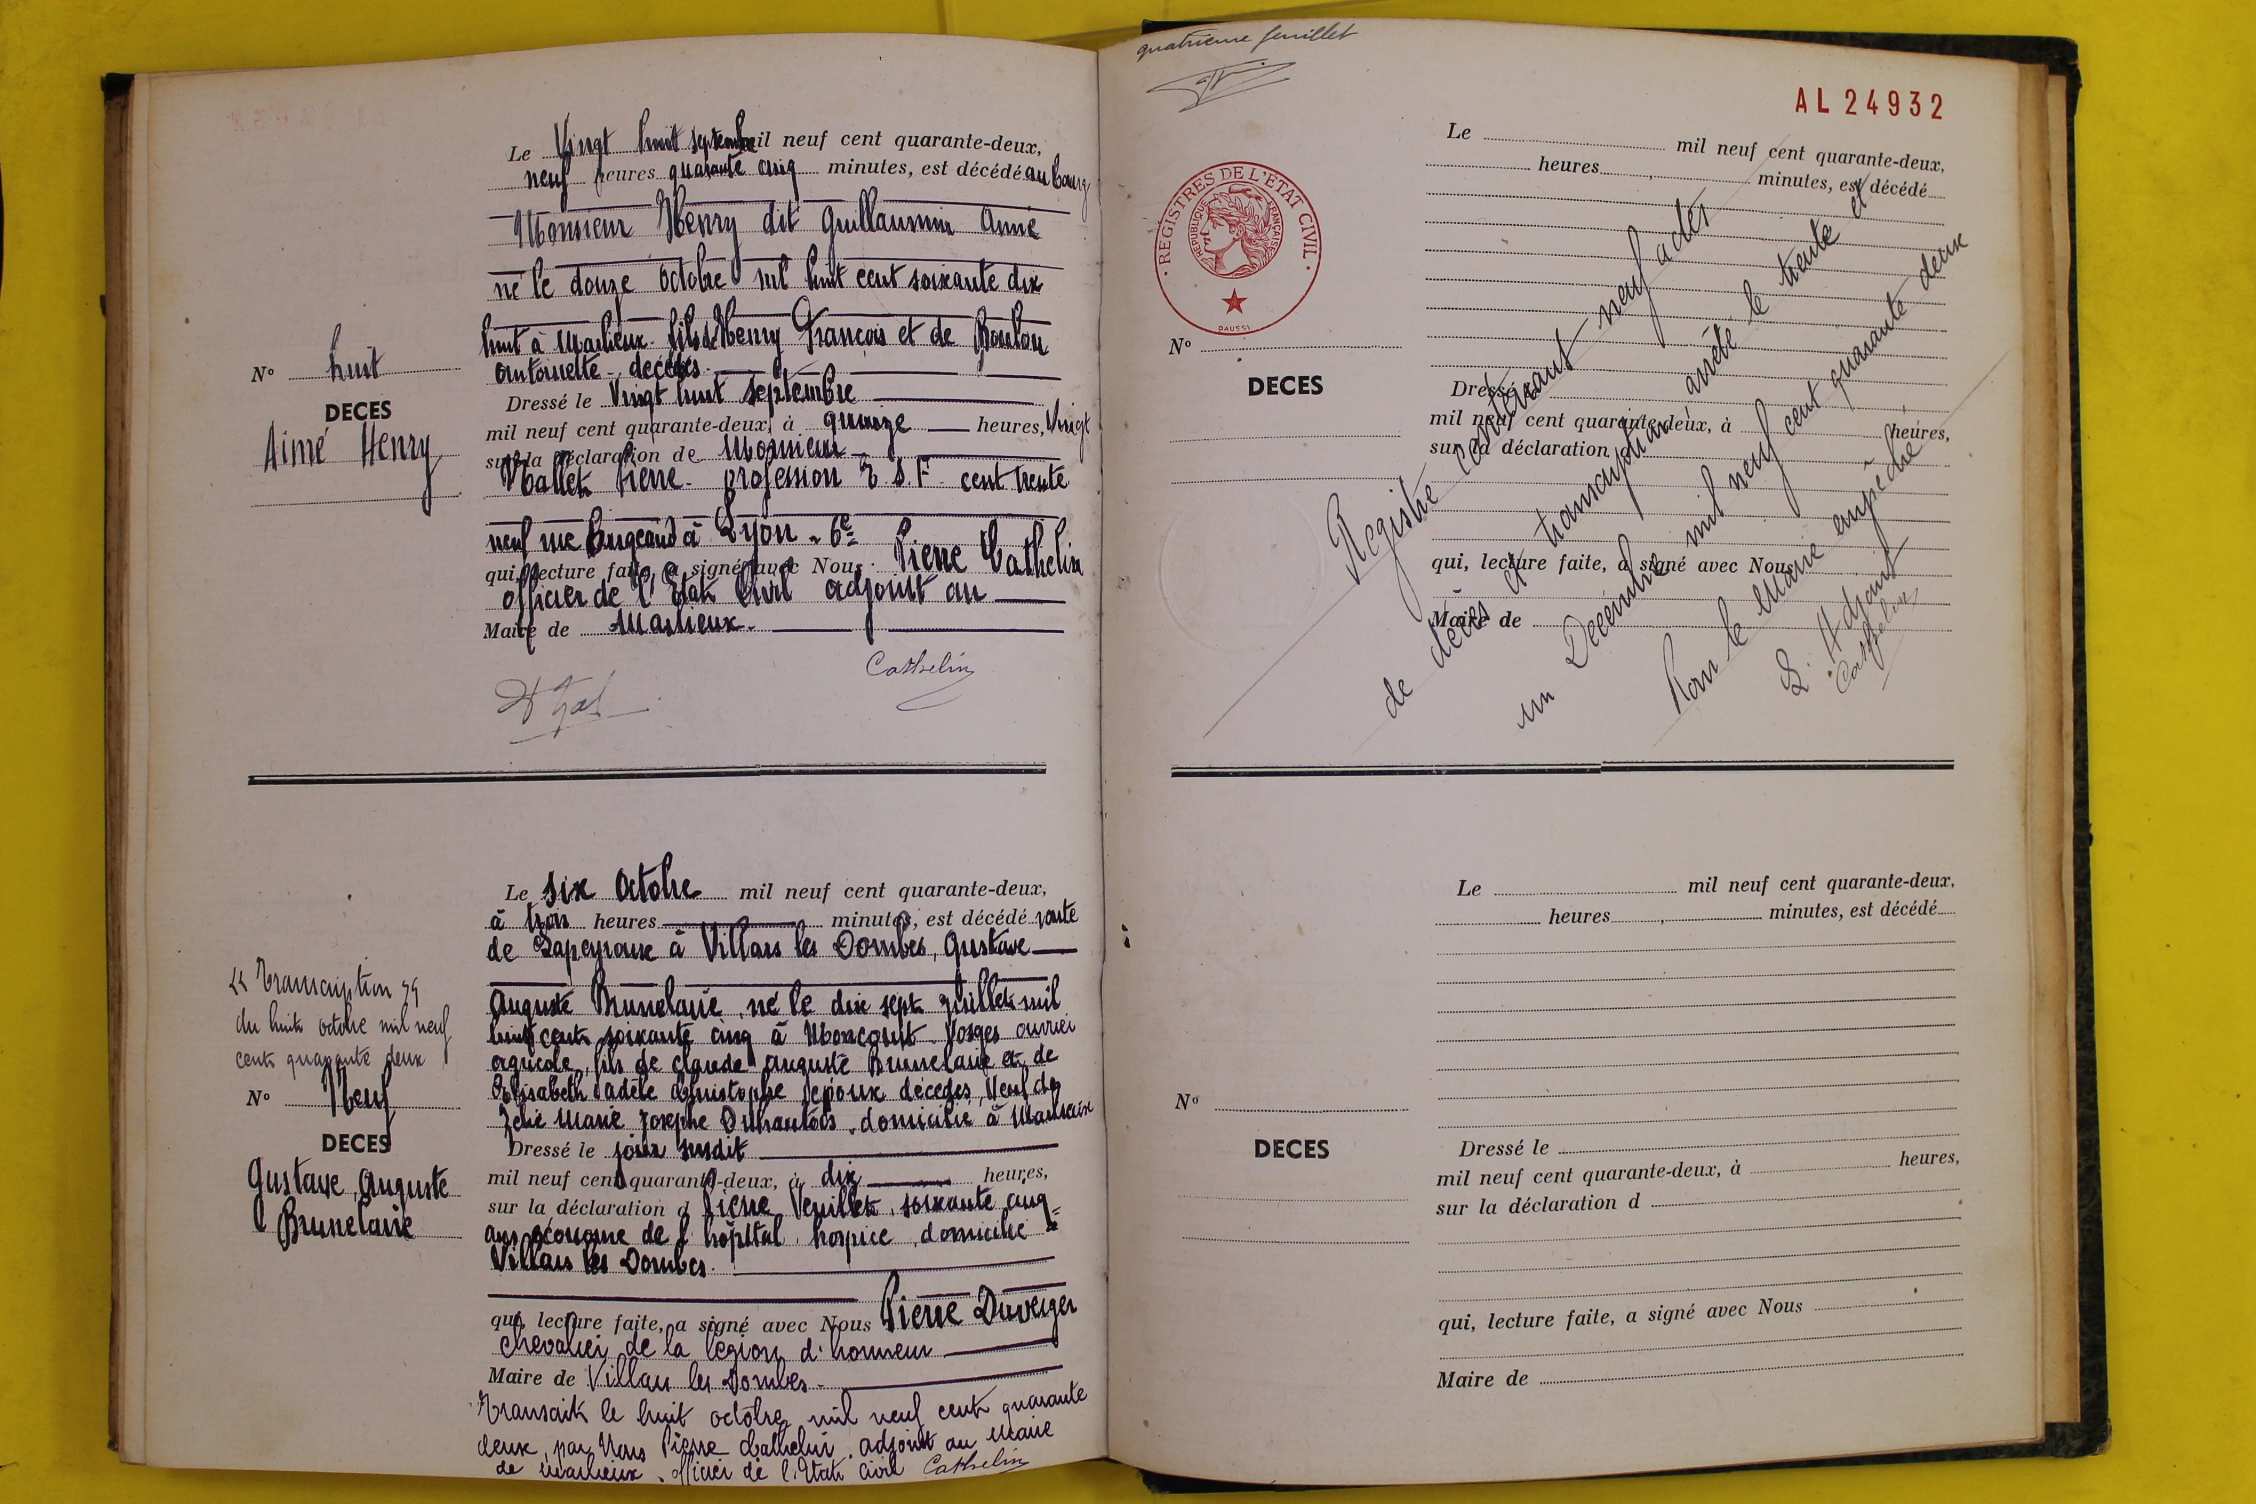 Le Vingt huit septembre mil neuf cent quarante-deux,
neuf heures quarante cinq minutes, est décédé au bourg
Monsieur Henry dit Guillaumin Aimé
né le douze octobre mil huit cent soixante dix
huit à Marlieux fils de Henry François et de Boulon
Antoinette - décédés
Dressé le Vingt huit septembre
mil neuf cent quarante-deux, à quinze heures, Vingt
sur la déclaration de Monsieur
Pierre - profession T.S.F. cent trente
neuf rue Bugeaud à Lyon - 6e
qui, lecture faite, a signé avec Nous Pierre Cathelin
officier de l'Etat Civil adjoint au
Maire de Marlieux.
Cathelin
N° huit
DECES
Aimé Henry
Le six octobre mil neuf cent quarante-deux,
à trois heures minutes, est décédé route
de Lapeyrouse à Villars les Dombes, Gustave
Auguste Brunelaire, né le dix sept juillet mil
huit cent soixante cinq à Moncourt - Vosges ouvrier
agricole, fils de Claude Auguste Brunelaire et de
Elisabeth Adèle Christophe époux décédés, Veuf de
Zélie Marie Josephe, domicilié à Marlieux
Dressé le jour susdit
mil neuf cent quarante-deux, à dix heures,
sur la déclaration d Pierre Veuillet, soixante cinq
ans économe de l'hôpital hospice, domicilié à
Villars les Dombes.
qui, lecture faite, a signé avec Nous Pierre Duverger
Chevalier de la légion d'honneur
Maire de Villars les Dombes -
Transcrit le huit octobre mil neuf cent quarante
deux, par Nous Pierre Cathelin, adjoint au Maire
de Marlieux, officier de l'Etat civil Cathelin
"Transcription"
du huit octobre mil neuf
cent quarante deux
N° Neuf
DECES
Gustave, Auguste
Brunelaire
quatrième feuillet
AL 24932
REGISTRES DE L'ÉTAT CIVIL
RÉPUBLIQUE FRANÇAISE
DAUSSI
Le mil neuf cent quarante-deux,
heures minutes, est décédé
N°
DECES
Dressé le
mil neuf cent quarante-deux, à heures,
sur la déclaration d
qui, lecture faite, a signé avec Nous
Maire de
Registre contenant neuf actes
de décès et transcription arrêté le trente et
un Décembre mil neuf cent quarante deux
Pour le Maire empêché
L'Adjoint
Cathelin
Le mil neuf cent quarante-deux,
heures minutes, est décédé
N°
DECES
Dressé le
mil neuf cent quarante-deux, à heures,
sur la déclaration d
qui, lecture faite, a signé avec Nous
Maire de